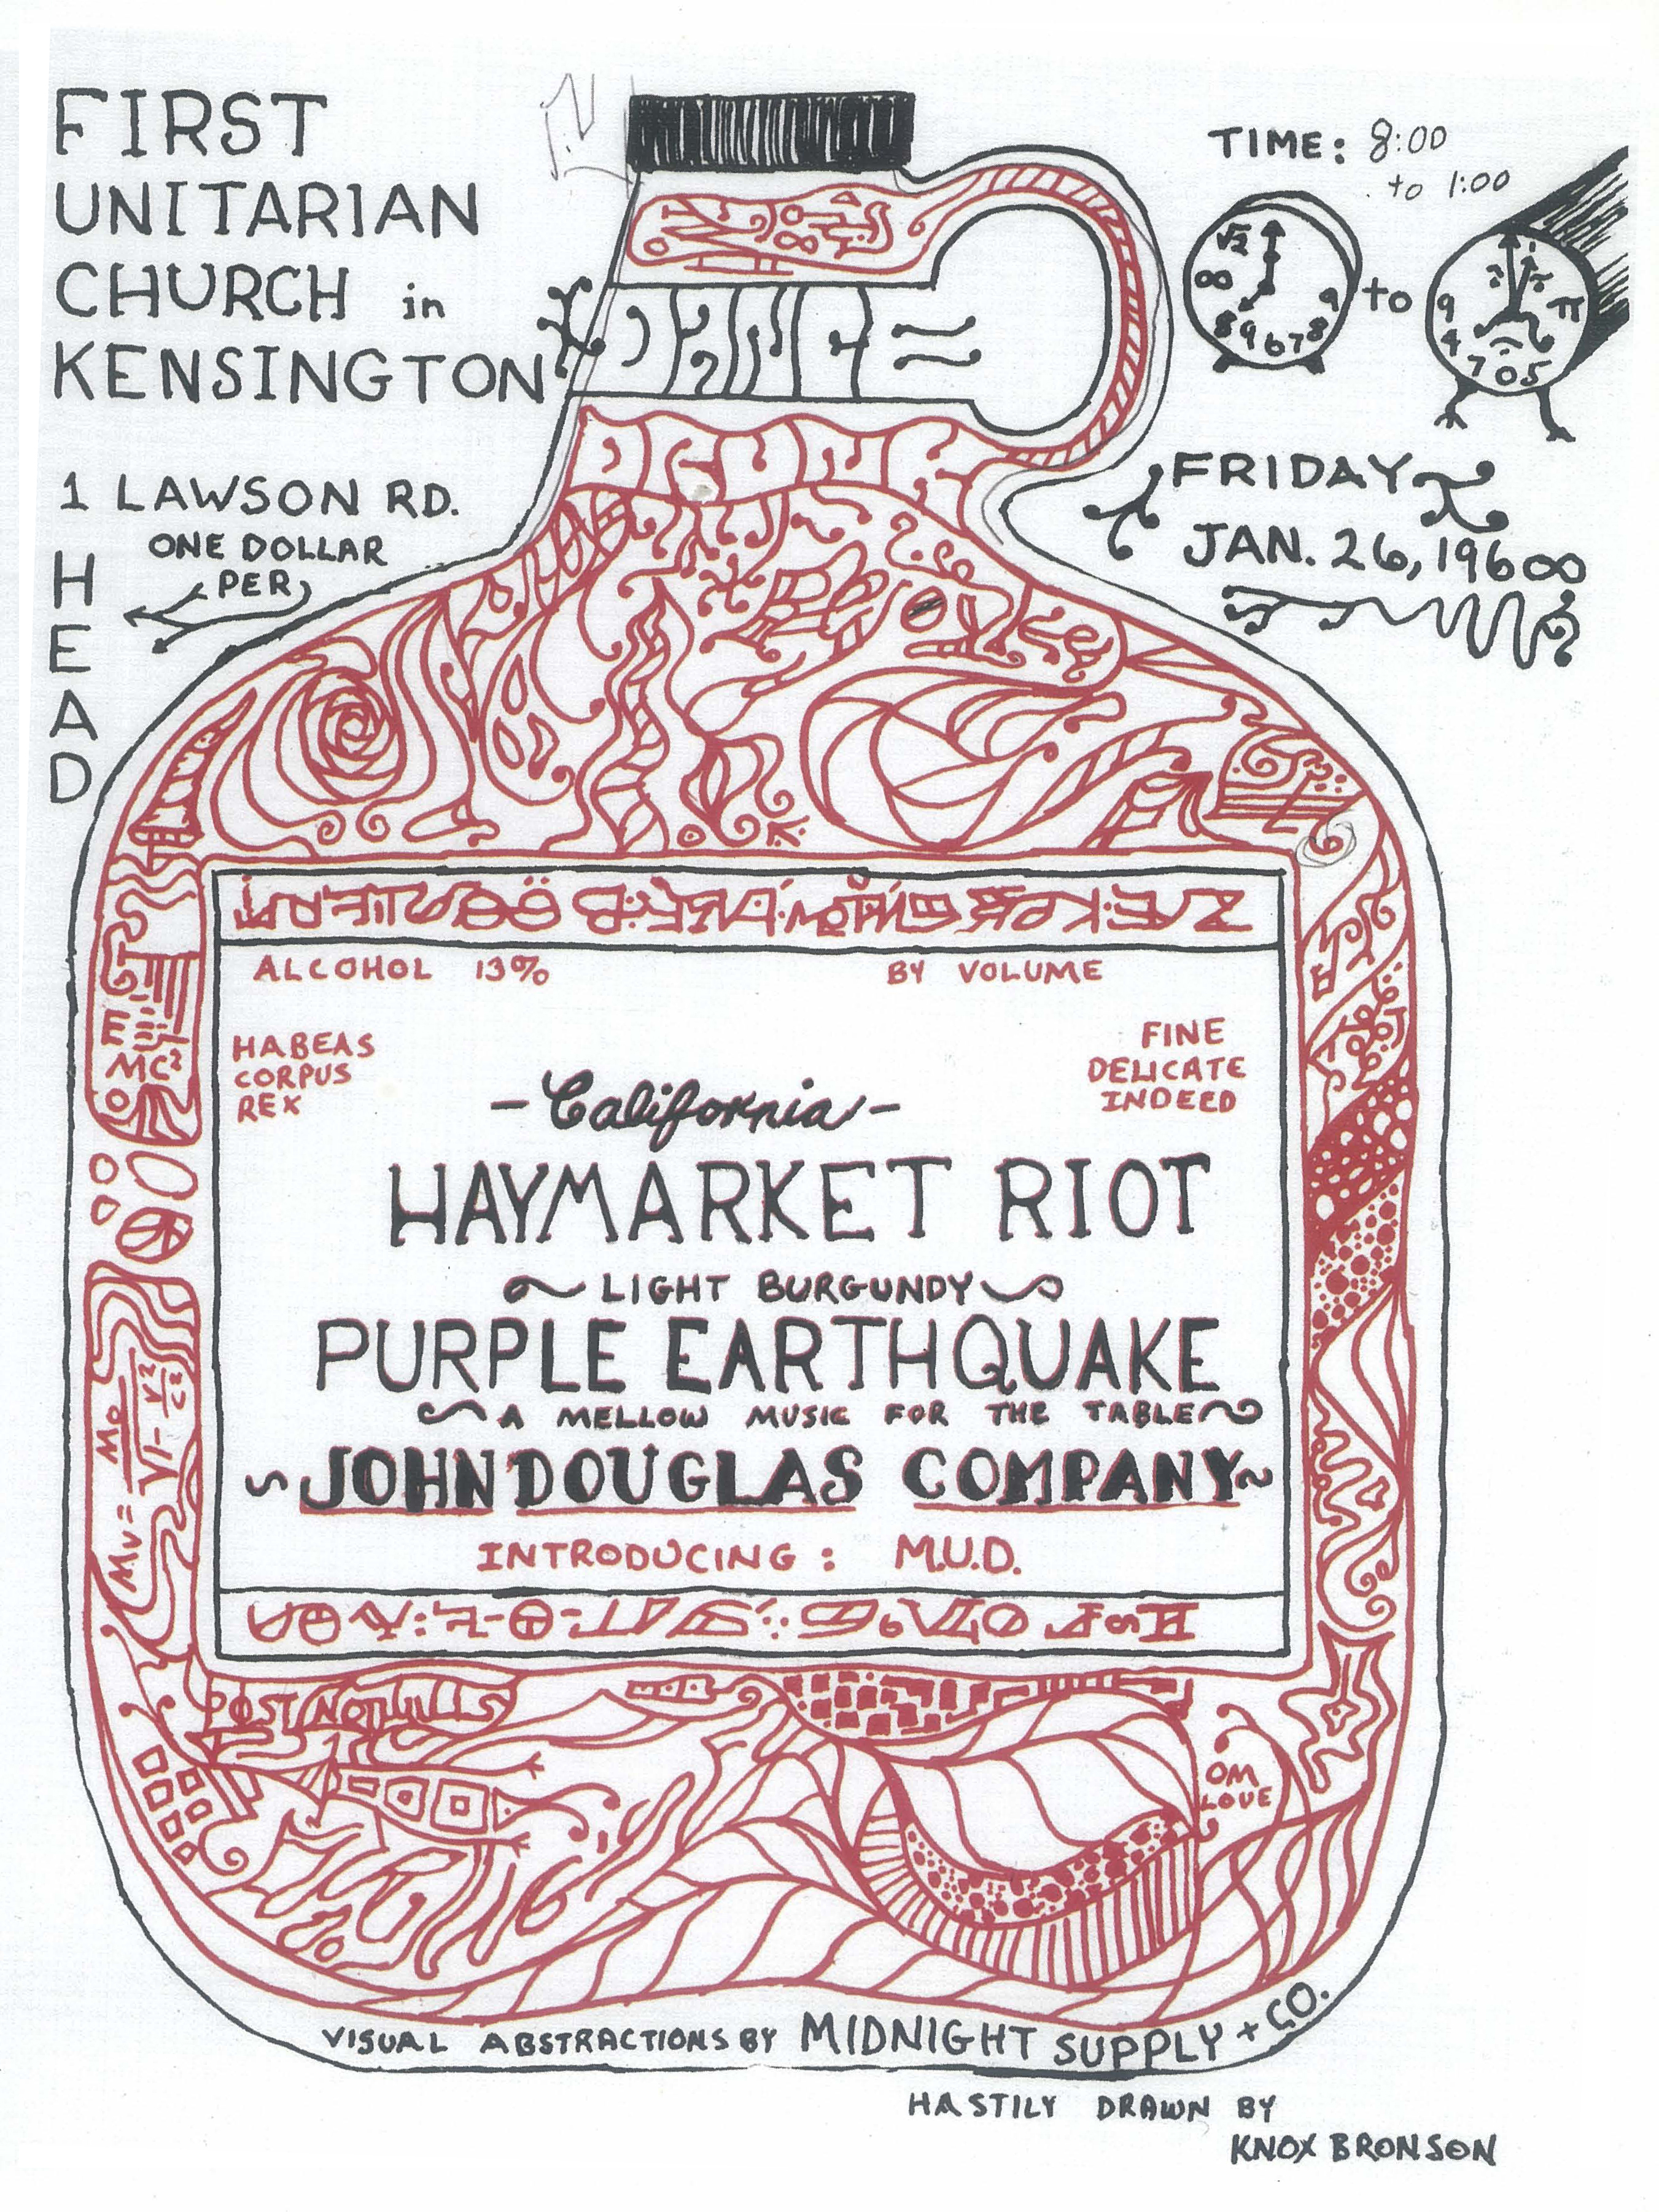 FIRST
UNITARIAN
CHURCH in
KENSINGTON
1 LAWSON RD.
ONE DOLLAR
PER
HEAD
TIME: 8:00
to 1:00
√2
∞
8 9 6 7 8 9
to
9 4 7 0 5 π
FRIDAY
JAN. 26, 196∞
DANCE
DRUNK
ALCOHOL 13% BY VOLUME
HABEAS
CORPUS
REX
FINE
DELICATE
INDEED
- California -
HAYMARKET RIOT
~ LIGHT BURGUNDY ~
PURPLE EARTHQUAKE
~ A MELLOW MUSIC FOR THE TABLE ~
~ JOHN DOUGLAS COMPANY ~
INTRODUCING: M.U.D.
E
MC²
Mv = Mo / √1 - v²/c²
POST NO BILLS
OM
LOVE
VISUAL ABSTRACTIONS BY MIDNIGHT SUPPLY + CO.
HASTILY DRAWN BY
KNOX BRONSON